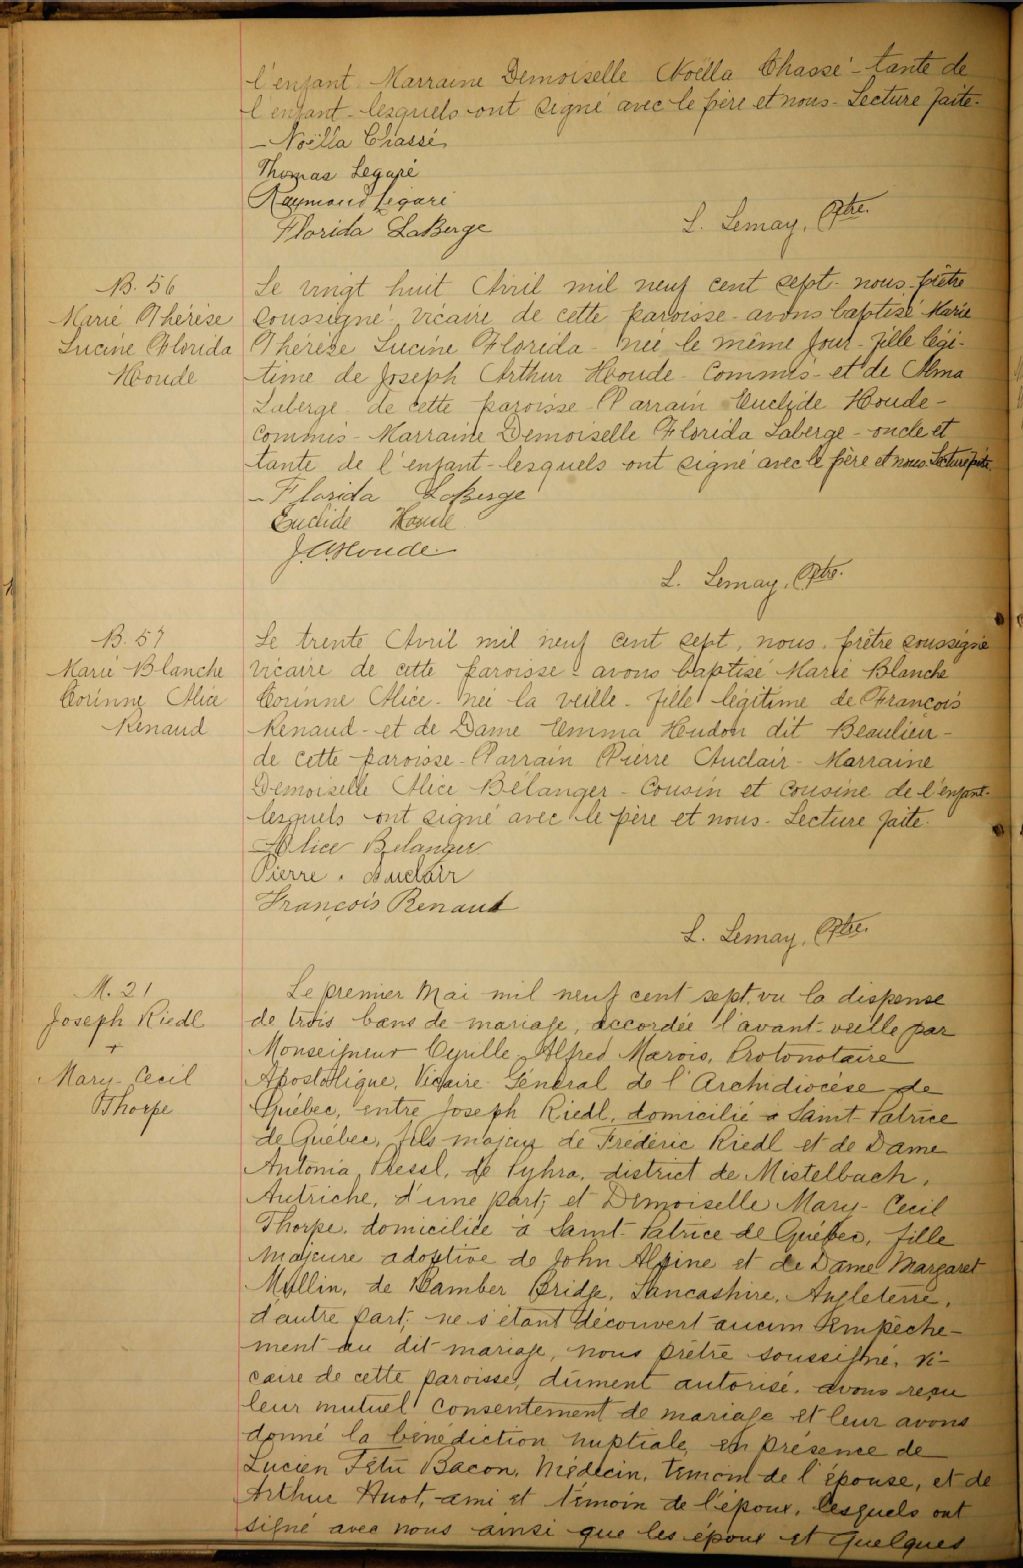 l'enfant. Marraine Demoiselle Noëlla Chassé - tante de
l'enfant - lesquels ont signé avec le père et nous - Lecture faite.
- Noëlla Chassé
Thomas Legaré
Raymond Légaré
Florida LaBerge
L. Lemay, Ptre.
B. 56
Marie Thérèse
Lucine Florida
Houde
Le vingt huit Avril mil neuf cent sept - nous - prêtre
soussigné - vicaire de cette paroisse - avons baptisé Marie
Thérèse Lucine Florida - née le même jour - fille légi-
time de Joseph Arthur Houde - Commis - et de Alma
Laberge - de cette paroisse - Parrain Euclide Houde -
commis - Marraine Demoiselle Florida Laberge - oncle et
tante de l'enfant - lesquels ont signé avec le père et nous. Lecture faite.
- Florida LaBerge
Euclide Houde
J.A. Houde
L. Lemay, Ptre.
B. 57
Marie Blanche
Corinne Alice
Renaud
Le trente Avril mil neuf cent sept, nous, prêtre soussigné
vicaire de cette paroisse - avons baptisé Marie Blanche
Corinne Alice - née la veille - fille légitime de François
Renaud - et de Dame Emma Hudon dit Beaulieu -
de cette paroisse - Parrain Pierre Auclair - Marraine
Demoiselle Alice Bélanger - Cousin et Cousine de l'enfant -
lesquels ont signé avec le père et nous - Lecture faite.
- Alice Belanger
Pierre Auclair
François Renaud
L. Lemay, Ptre.
M. 21
Joseph Riedl
+
Mary-Cecil
Thorpe
Le premier Mai mil neuf cent sept, vu la dispense
de trois bans de mariage, accordée l'avant-veille par
Monseigneur Cyrille Alfred Marois, Protonotaire
Apostolique, Vicaire Général de l'Archidiocèse de
Québec, entre Joseph Riedl, domicilié à Saint-Patrice
de Québec, fils majeur de Frédéric Riedl et de Dame
Antonia Pressl, de Pyhra, district de Mistelbach,
Autriche, d'une part; et Demoiselle Mary-Cecil
Thorpe, domiciliée à Saint-Patrice de Québec, fille
majeure adoptive de John Alpine et de Dame Margaret
Mullin, de Bamber Bridge, Lancashire, Angleterre,
d'autre part; ne s'étant découvert aucun empêche-
ment au dit mariage, nous prêtre soussigné, vi-
caire de cette paroisse, dûment autorisé, avons reçu
leur mutuel consentement de mariage et leur avons
donné la bénédiction nuptiale, en présence de
Lucien Fétu Bacon, Médecin, témoin de l'épouse, et de
Arthur Huot, ami et témoin de l'époux, lesquels ont
signé avec nous ainsi que les époux et quelques